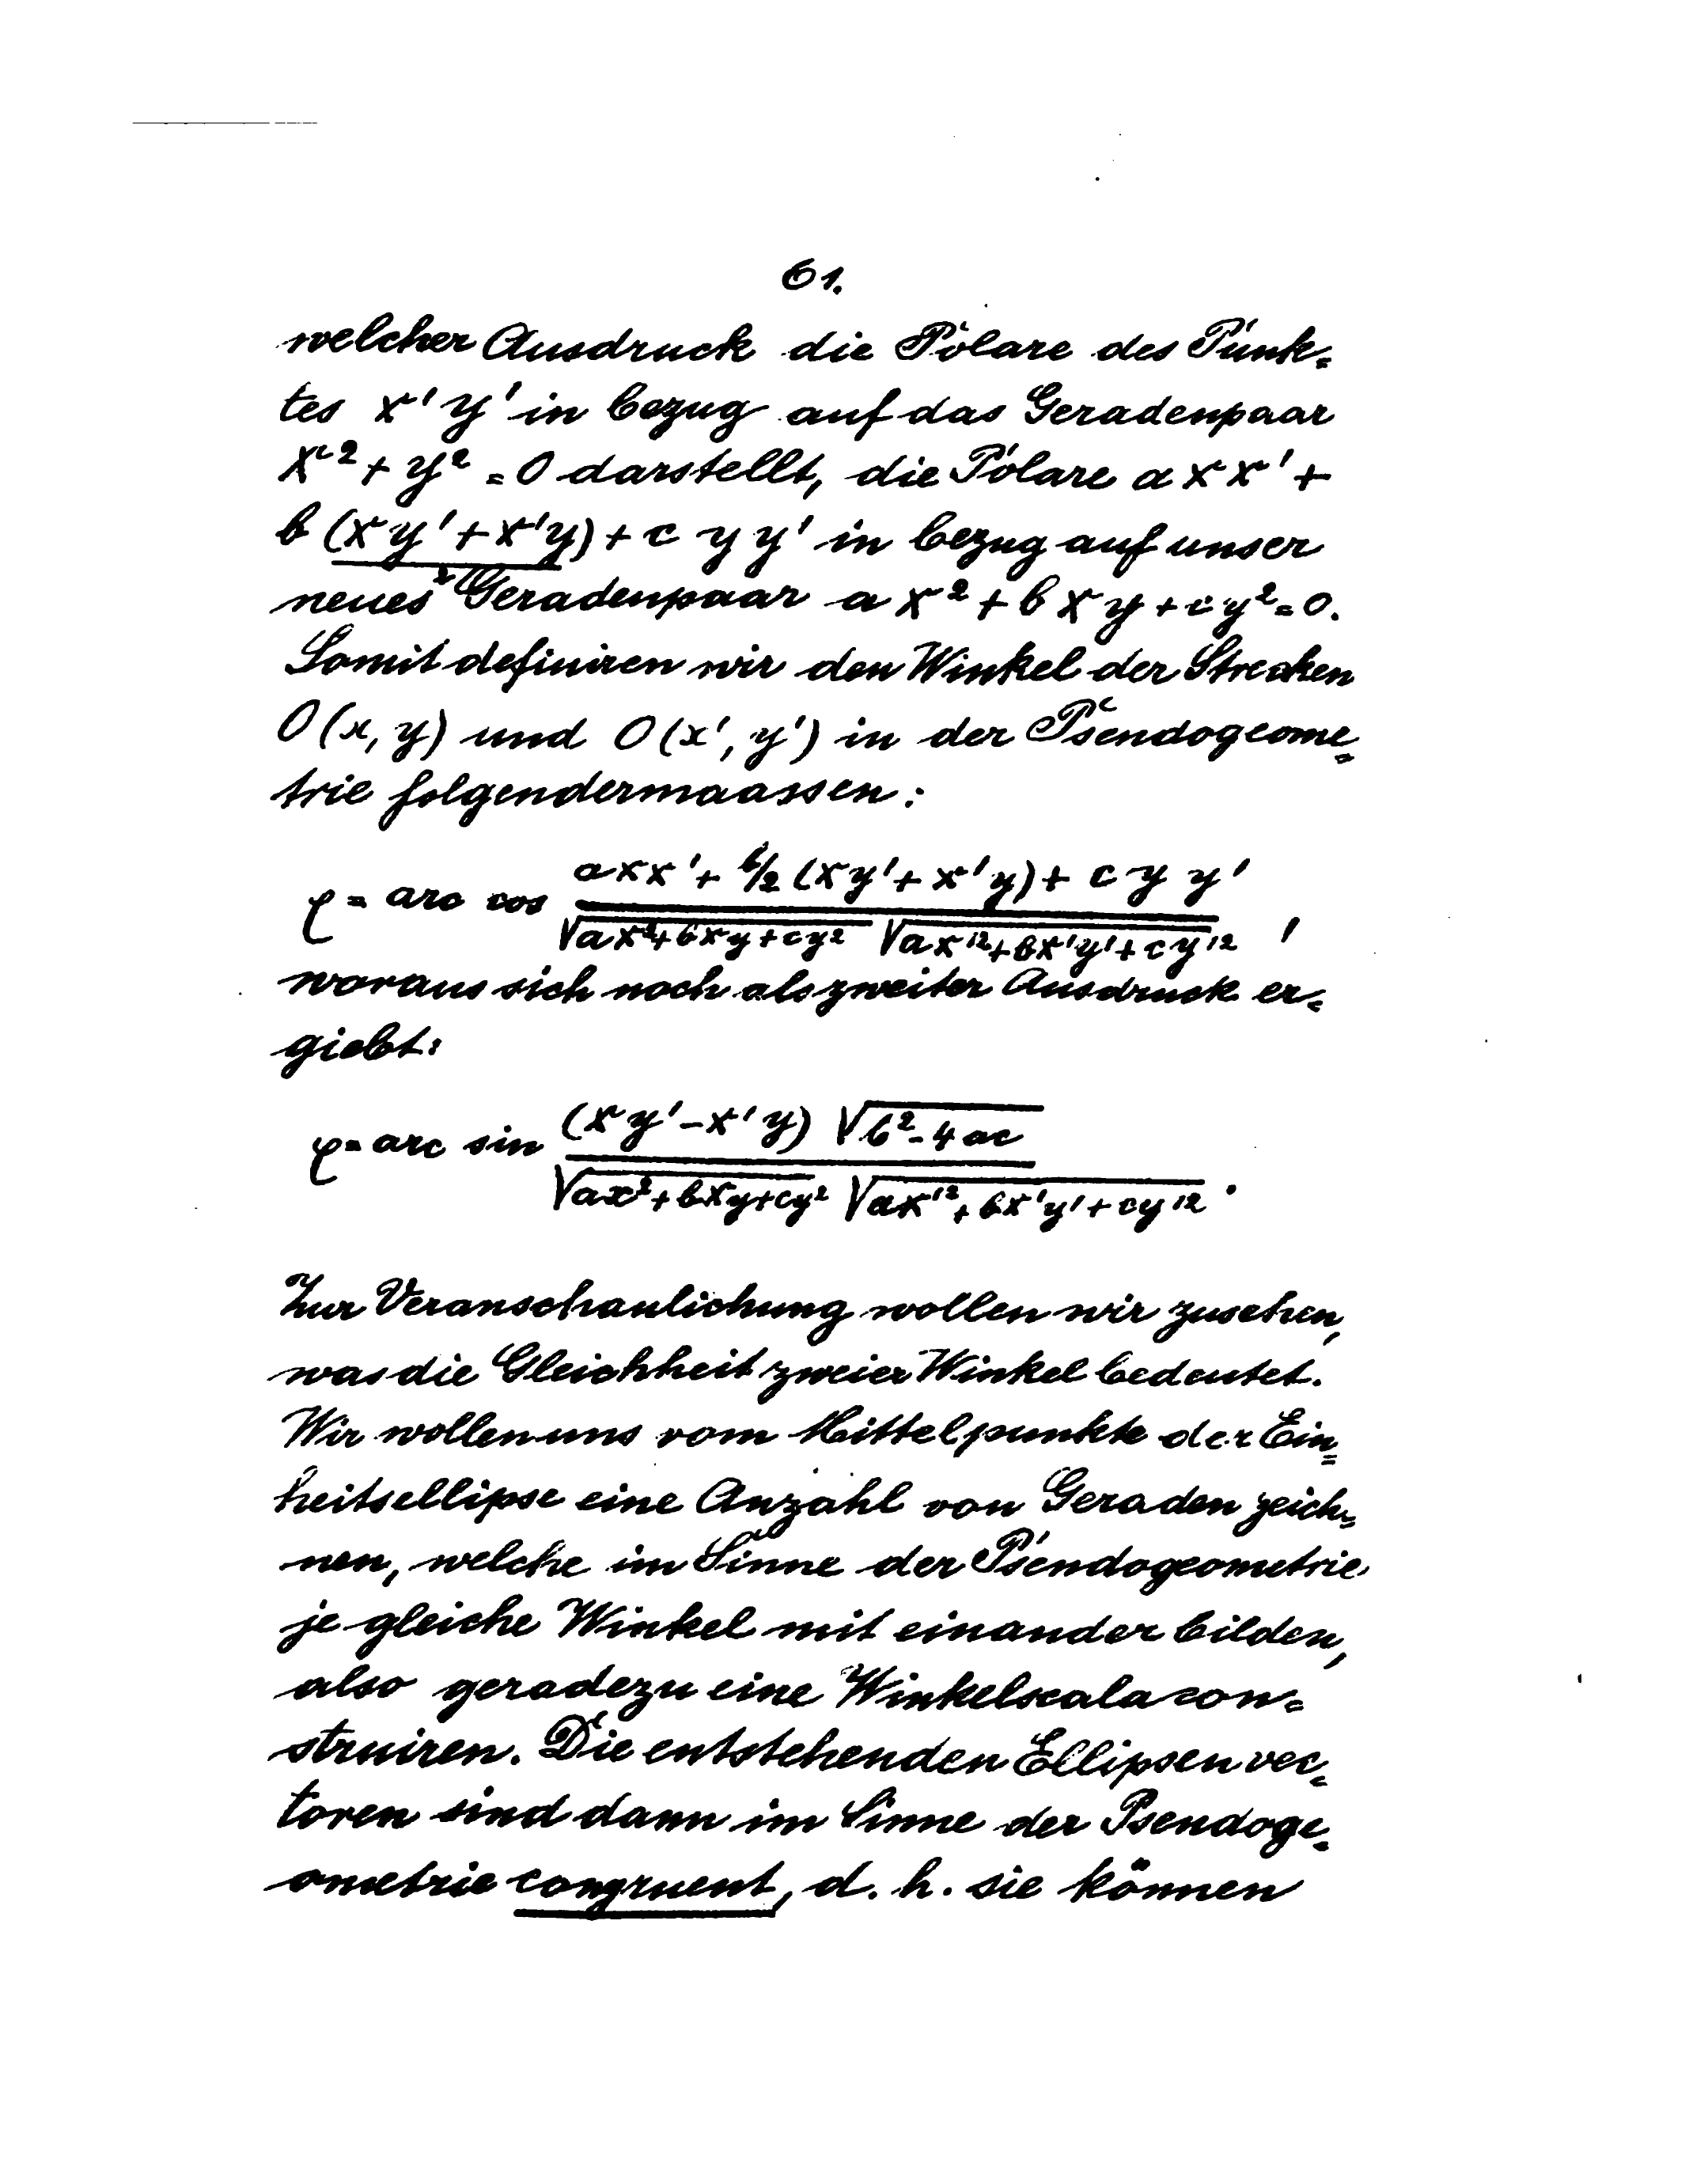 61.
welcher Ausdruck die Polare des Punk=
tes x' y' in bezug auf das Geradenpaar
x² + y² = 0 darstellt, die Polare a x x' +
b (x y' + x' y) + c y y' in bezug auf unser
2
neues Geradenpaar a x² + b x y + c y² = 0.
Somit definiren wir den Winkel der Strecken
O (x, y) und O (x', y') in der Pseudogeome=
trie folgendermaassen:
φ = arc cos (a x x' + b/2 (x y' + x' y) + c y y') / (√(a x² + b x y + c y²) √(a x'² + b x' y' + c y'²)) ,
woraus sich noch als zweiter Ausdruck er=
giebt:
φ = arc sin ((x y' - x' y) √(b² - 4 ac)) / (√(a x² + b x y + c y²) √(a x'² + b x' y' + c y'²)) .
Zur Veranschaulichung wollen wir zusehen,
was die Gleichheit zweier Winkel bedeutet.
Wir wollen uns vom Mittelpunkte der Ein=
heitsellipse eine Anzahl von Geraden zeich=
nen, welche im Sinne der Pseudogeometrie
je gleiche Winkel mit einander bilden,
also geradezu eine Winkelscala con=
struiren. Die entstehenden Ellipsenvec=
toren sind dann im Sinne der Pseudoge=
ometrie congruent, d. h. sie können